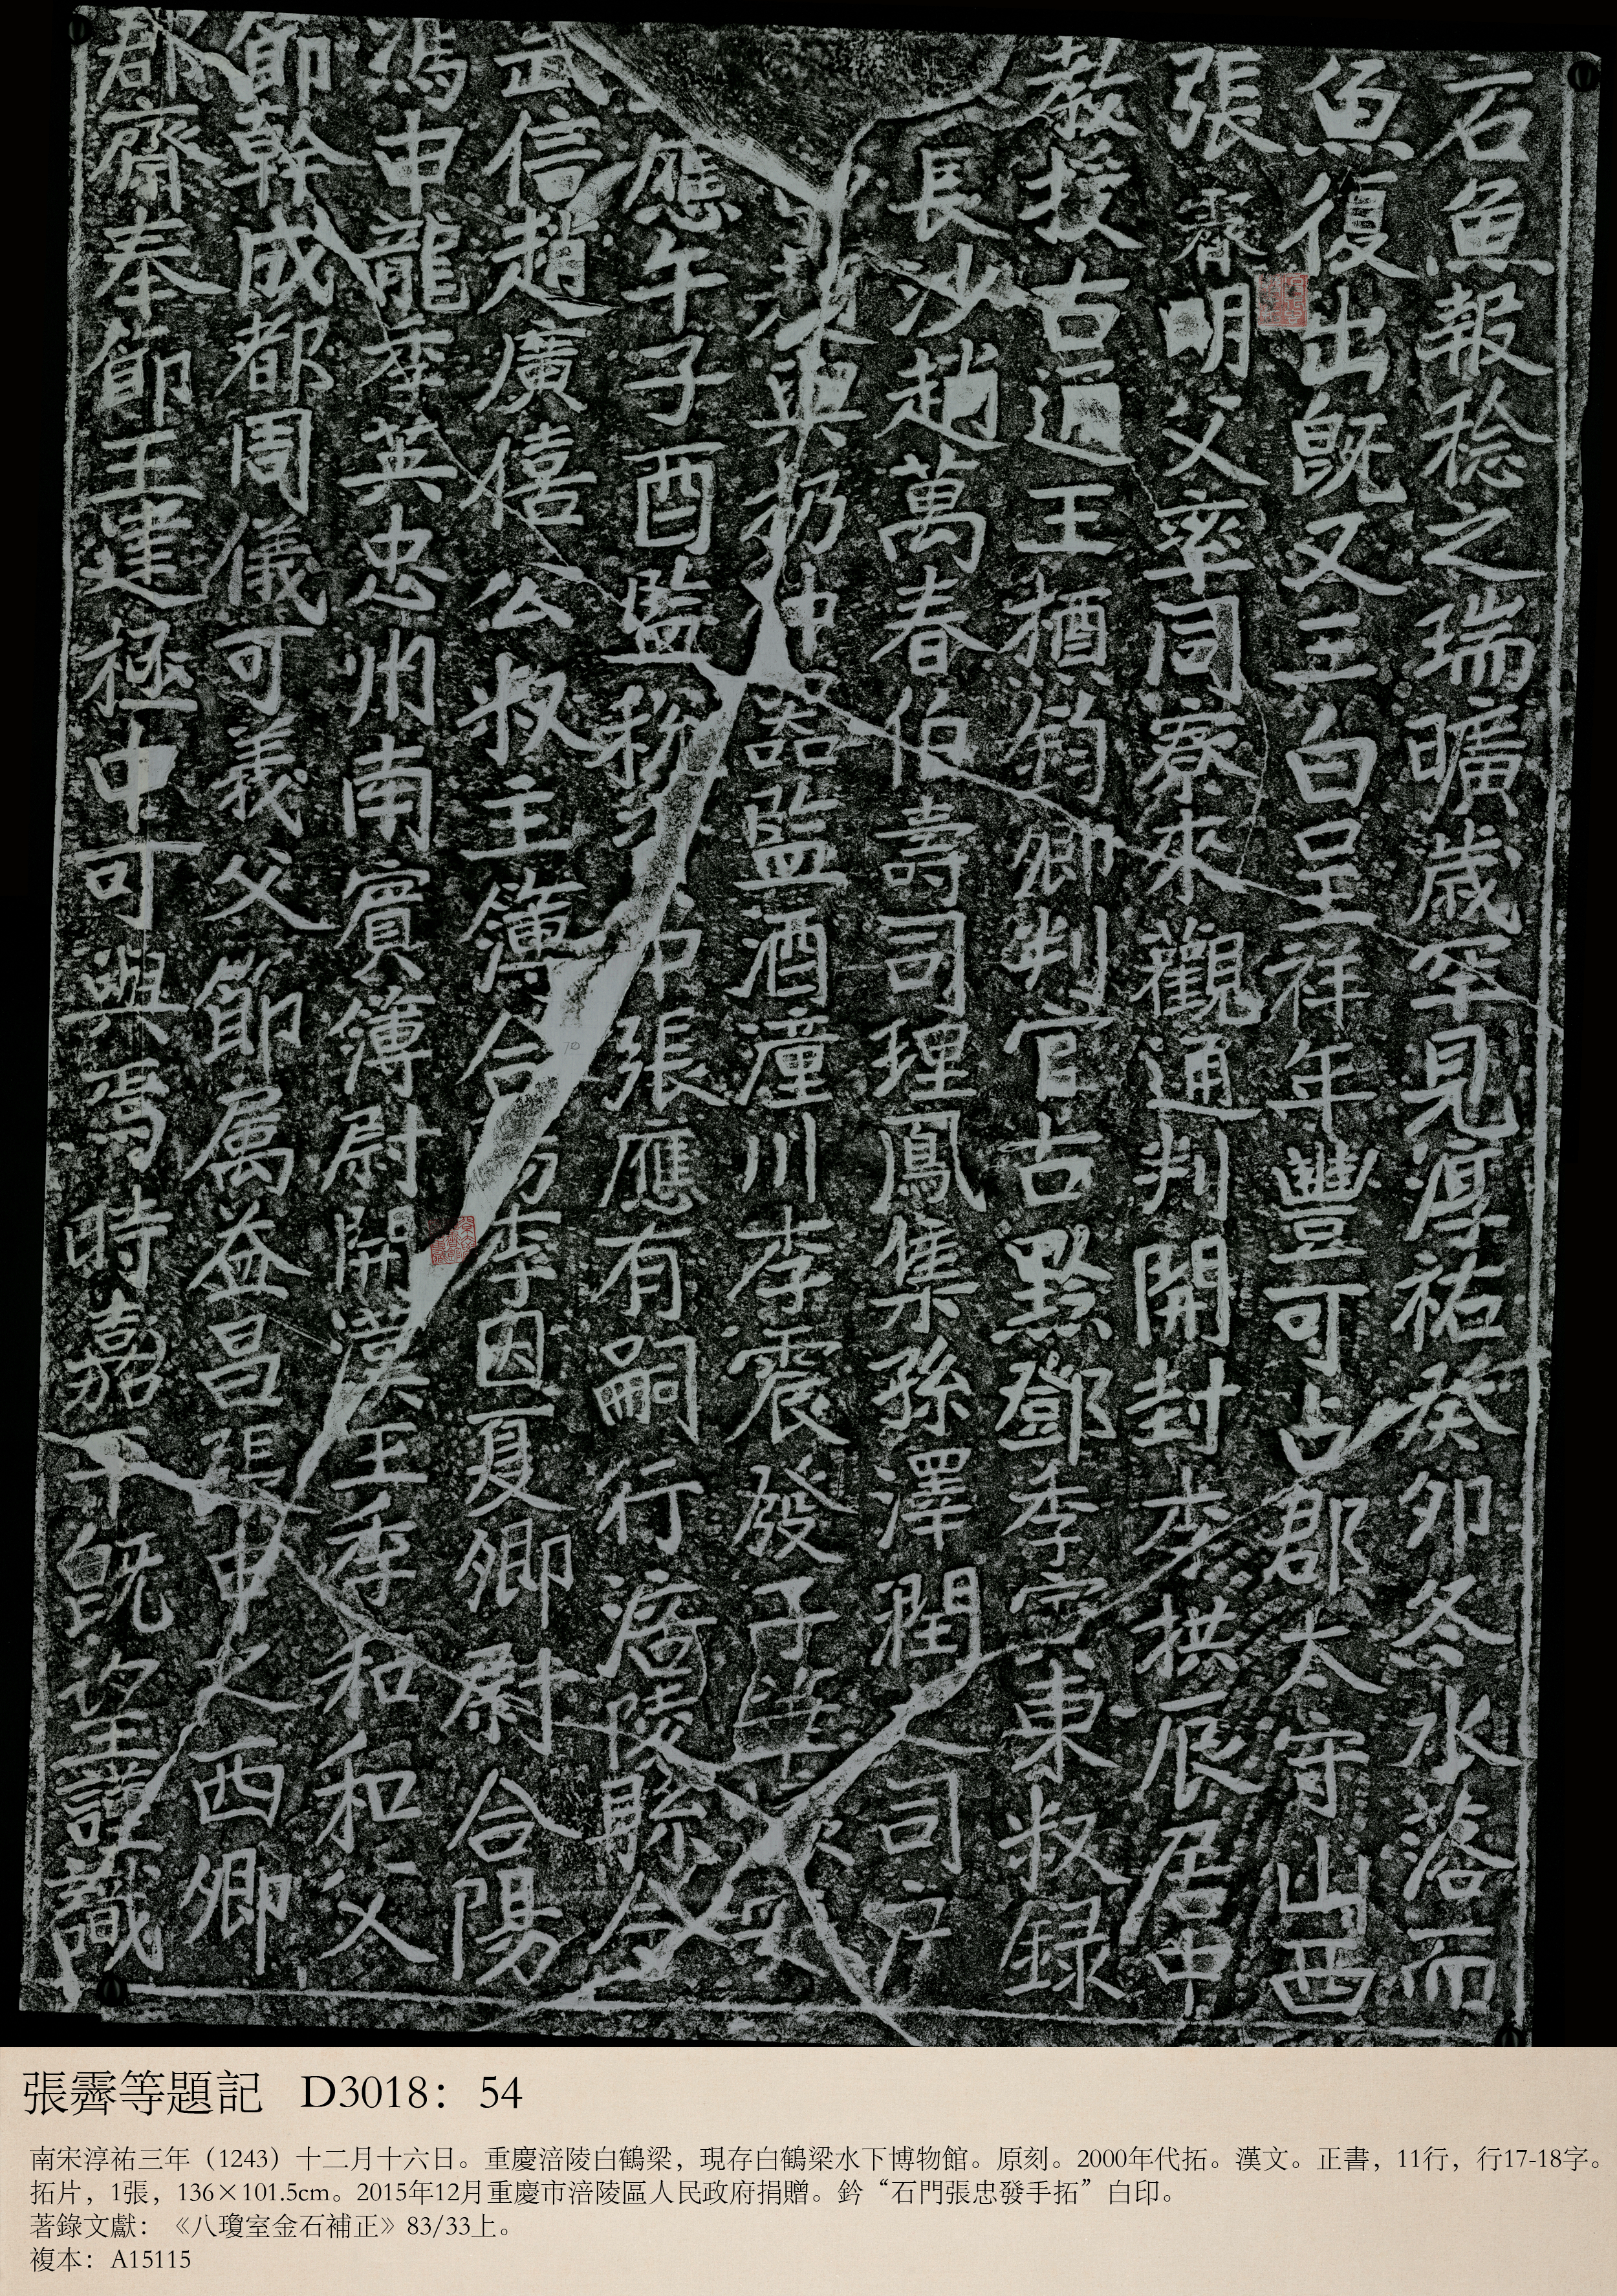 石魚報稔之瑞曠歲罕見淳祐癸卯冬水落而
魚復出既又三白呈祥年豐可占郡太守山西
張霽明父率同寮來觀通判開封李拱辰居中
教授古通王櫝鈞卿判官古黔鄧季寅東叔錄
長沙趙萬春伯壽司理鳳集孫澤潤之司戶
興扔仲器監酒潼川李震發子華
應午子酉監稅中張應有嗣行涪陵縣令
武信趙廣僖公叔主簿合李因夏卿尉合陽
馮申龍季英忠州南賓簿尉開漢王季和和父
節幹成都周儀可義父節属益昌張申之西卿
郡齋奉節王建極中可與焉時嘉平既望謹識
張霽等題記 D3018：54
南宋淳祐三年（1243）十二月十六日。重慶涪陵白鶴梁，現存白鶴梁水下博物館。原刻。2000年代拓。漢文。正書，11行，行17-18字。
拓片，1張，136×101.5cm。2015年12月重慶市涪陵區人民政府捐贈。鈐“石門張忠發手拓”白印。
著錄文獻：《八瓊室金石補正》83/33上。
複本：A15115